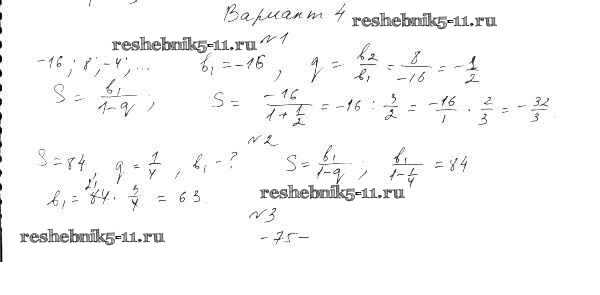 Вариант 4
reshebnik5-11.ru
reshebnik5-11.ru
№1
-16; 8; -4; ... b₁ = -16, q = b₂/b₁ = 8/-16 = -1/2
S = b₁/1-q; S = -16/1+1/2 = -16 : 3/2 = -16/1 · 2/3 = -32/3
№2
S = 84 q = 1/4, b₁ - ? S = b₁/1-q; b₁/1-1/4 = 84
b₁ = 84 · 3/4 = 63
reshebnik5-11.ru
№3
reshebnik5-11.ru
-75-